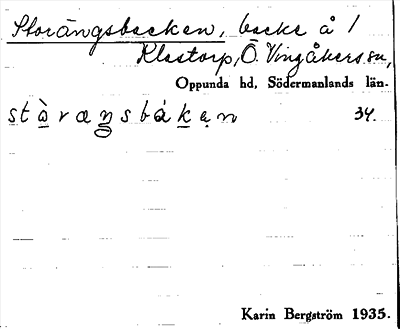 Storängsbacken, backe å 1
Klastorp, Ö. Vingåkers sn,
Oppunda hd, Södermanlands län.
stò̱ræŋsbákən 34.
Karin Bergström 1935.